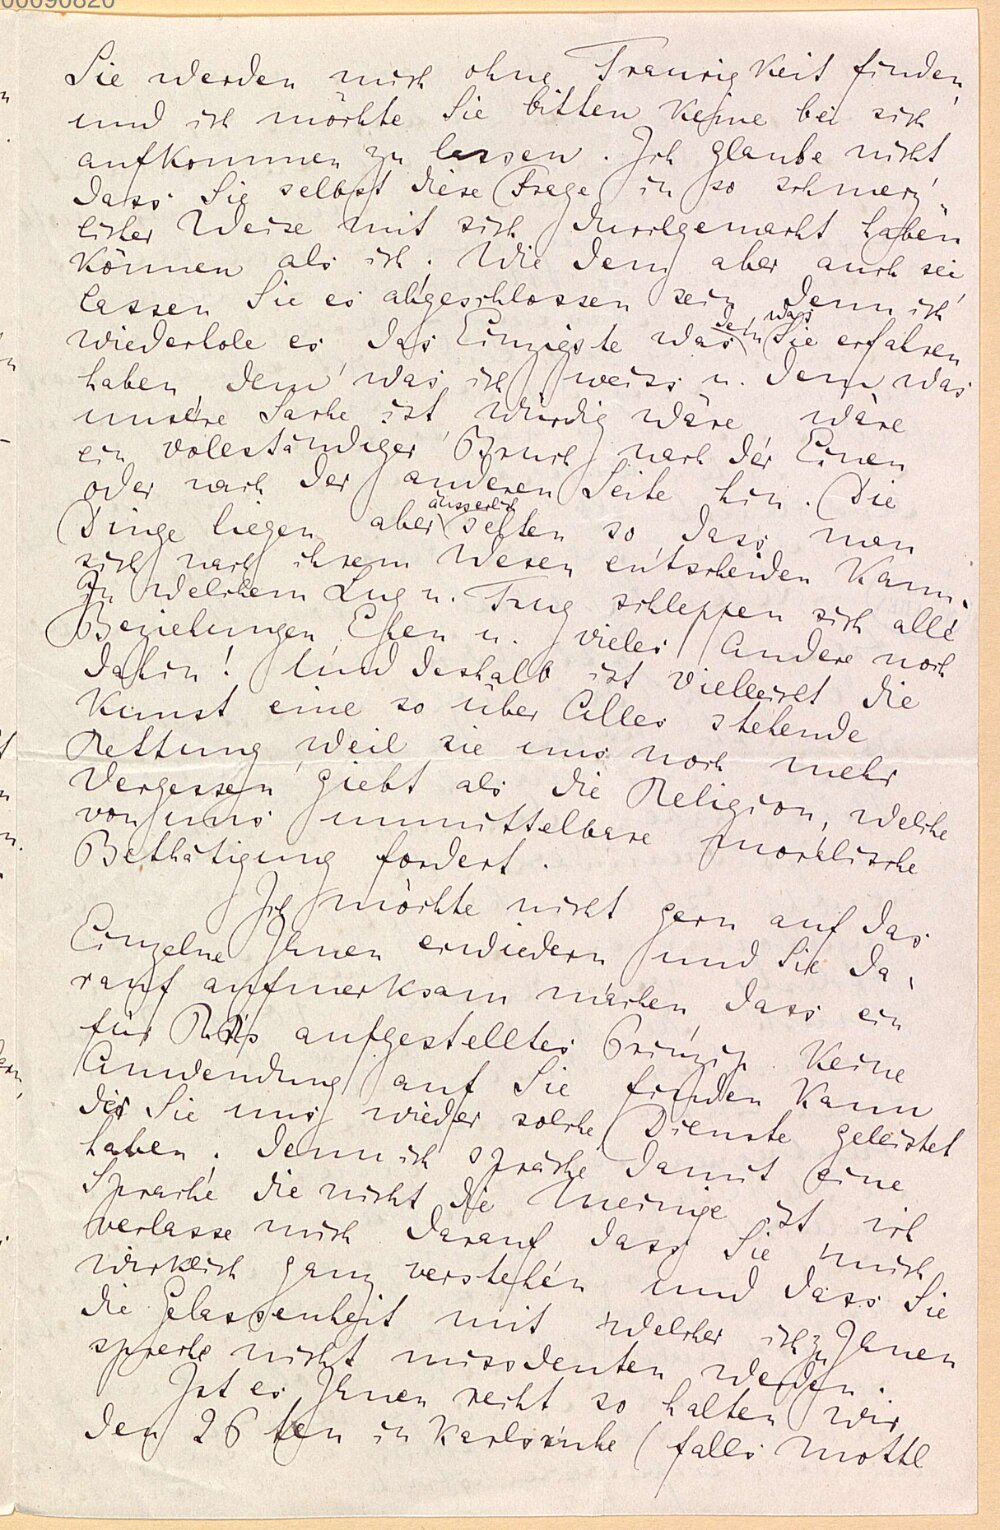 00090820
Sie werden mich ohne Traurigkeit finden,
und ich möchte Sie bitten keine bei sich
aufkommen zu lassen. Ich glaube nicht
dass Sie selbst diese Frage in so schmerz-
licher Weise mit sich durchgemacht haben
können als ich. Wie dem aber auch sei
lassen Sie es abgeschlossen sein, denn ich
wiederhole es das Einzigste was dem was Sie erfahren
haben, dem was ich weiss u. dem was
unsere Sache ist, würdig wäre, wäre
ein vollständiger Bruch nach der Einen
oder nach der anderen Seite hin. Die
Dinge liegen aber äusserlich selten so dass man
sich nach ihrem Wesen entscheiden kann.
In welchem Lug u. Trug schleppen sich alle
Beziehungen, Ehen u. vieles Andere noch
dahin! Und deshalb ist vielleicht die
Kunst eine so über Alles stehende
Rettung, weil sie uns noch mehr
Vergessen giebt als die Religion, welche
von uns unmittelbare moralische
Bethätigung fordert.
Ich möchte nicht gern auf das
Einzelne Ihnen erwiedern und Sie da-
rauf aufmerksam machen, dass ein
für aufgestelltes Prinzip keine
Anwendung auf Sie finden kann
die Sie uns wieder solche Dienste geleistet
haben. Denn ich spräche damit eine
Sprache die nicht die Meinige ist, ich
verlasse mich darauf dass Sie mich
wirklich ganz verstehen und dass Sie
die Gelassenheit mit welcher ich zu Ihnen
spreche nicht missdeuten werden.
Ist es Ihnen recht so halten wir
den 26ten in Karlsruhe (falls Mottl